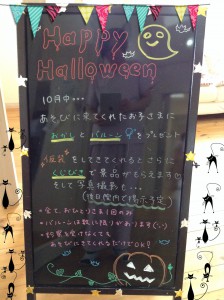 Happy
Halloween
10月中…
あそびに来てくれたお子さまに
おかしとバルーンをプレゼント
仮装をしてきてくれるとさらに
くじびきで景品がもらえます
そして写真撮影も…
(後日館内で掲示予定)
・全て、おひとりさま1回のみ
・バルーンは数に限りがあります
・教室を受けなくても
あそびにきてくれるだけでOK!